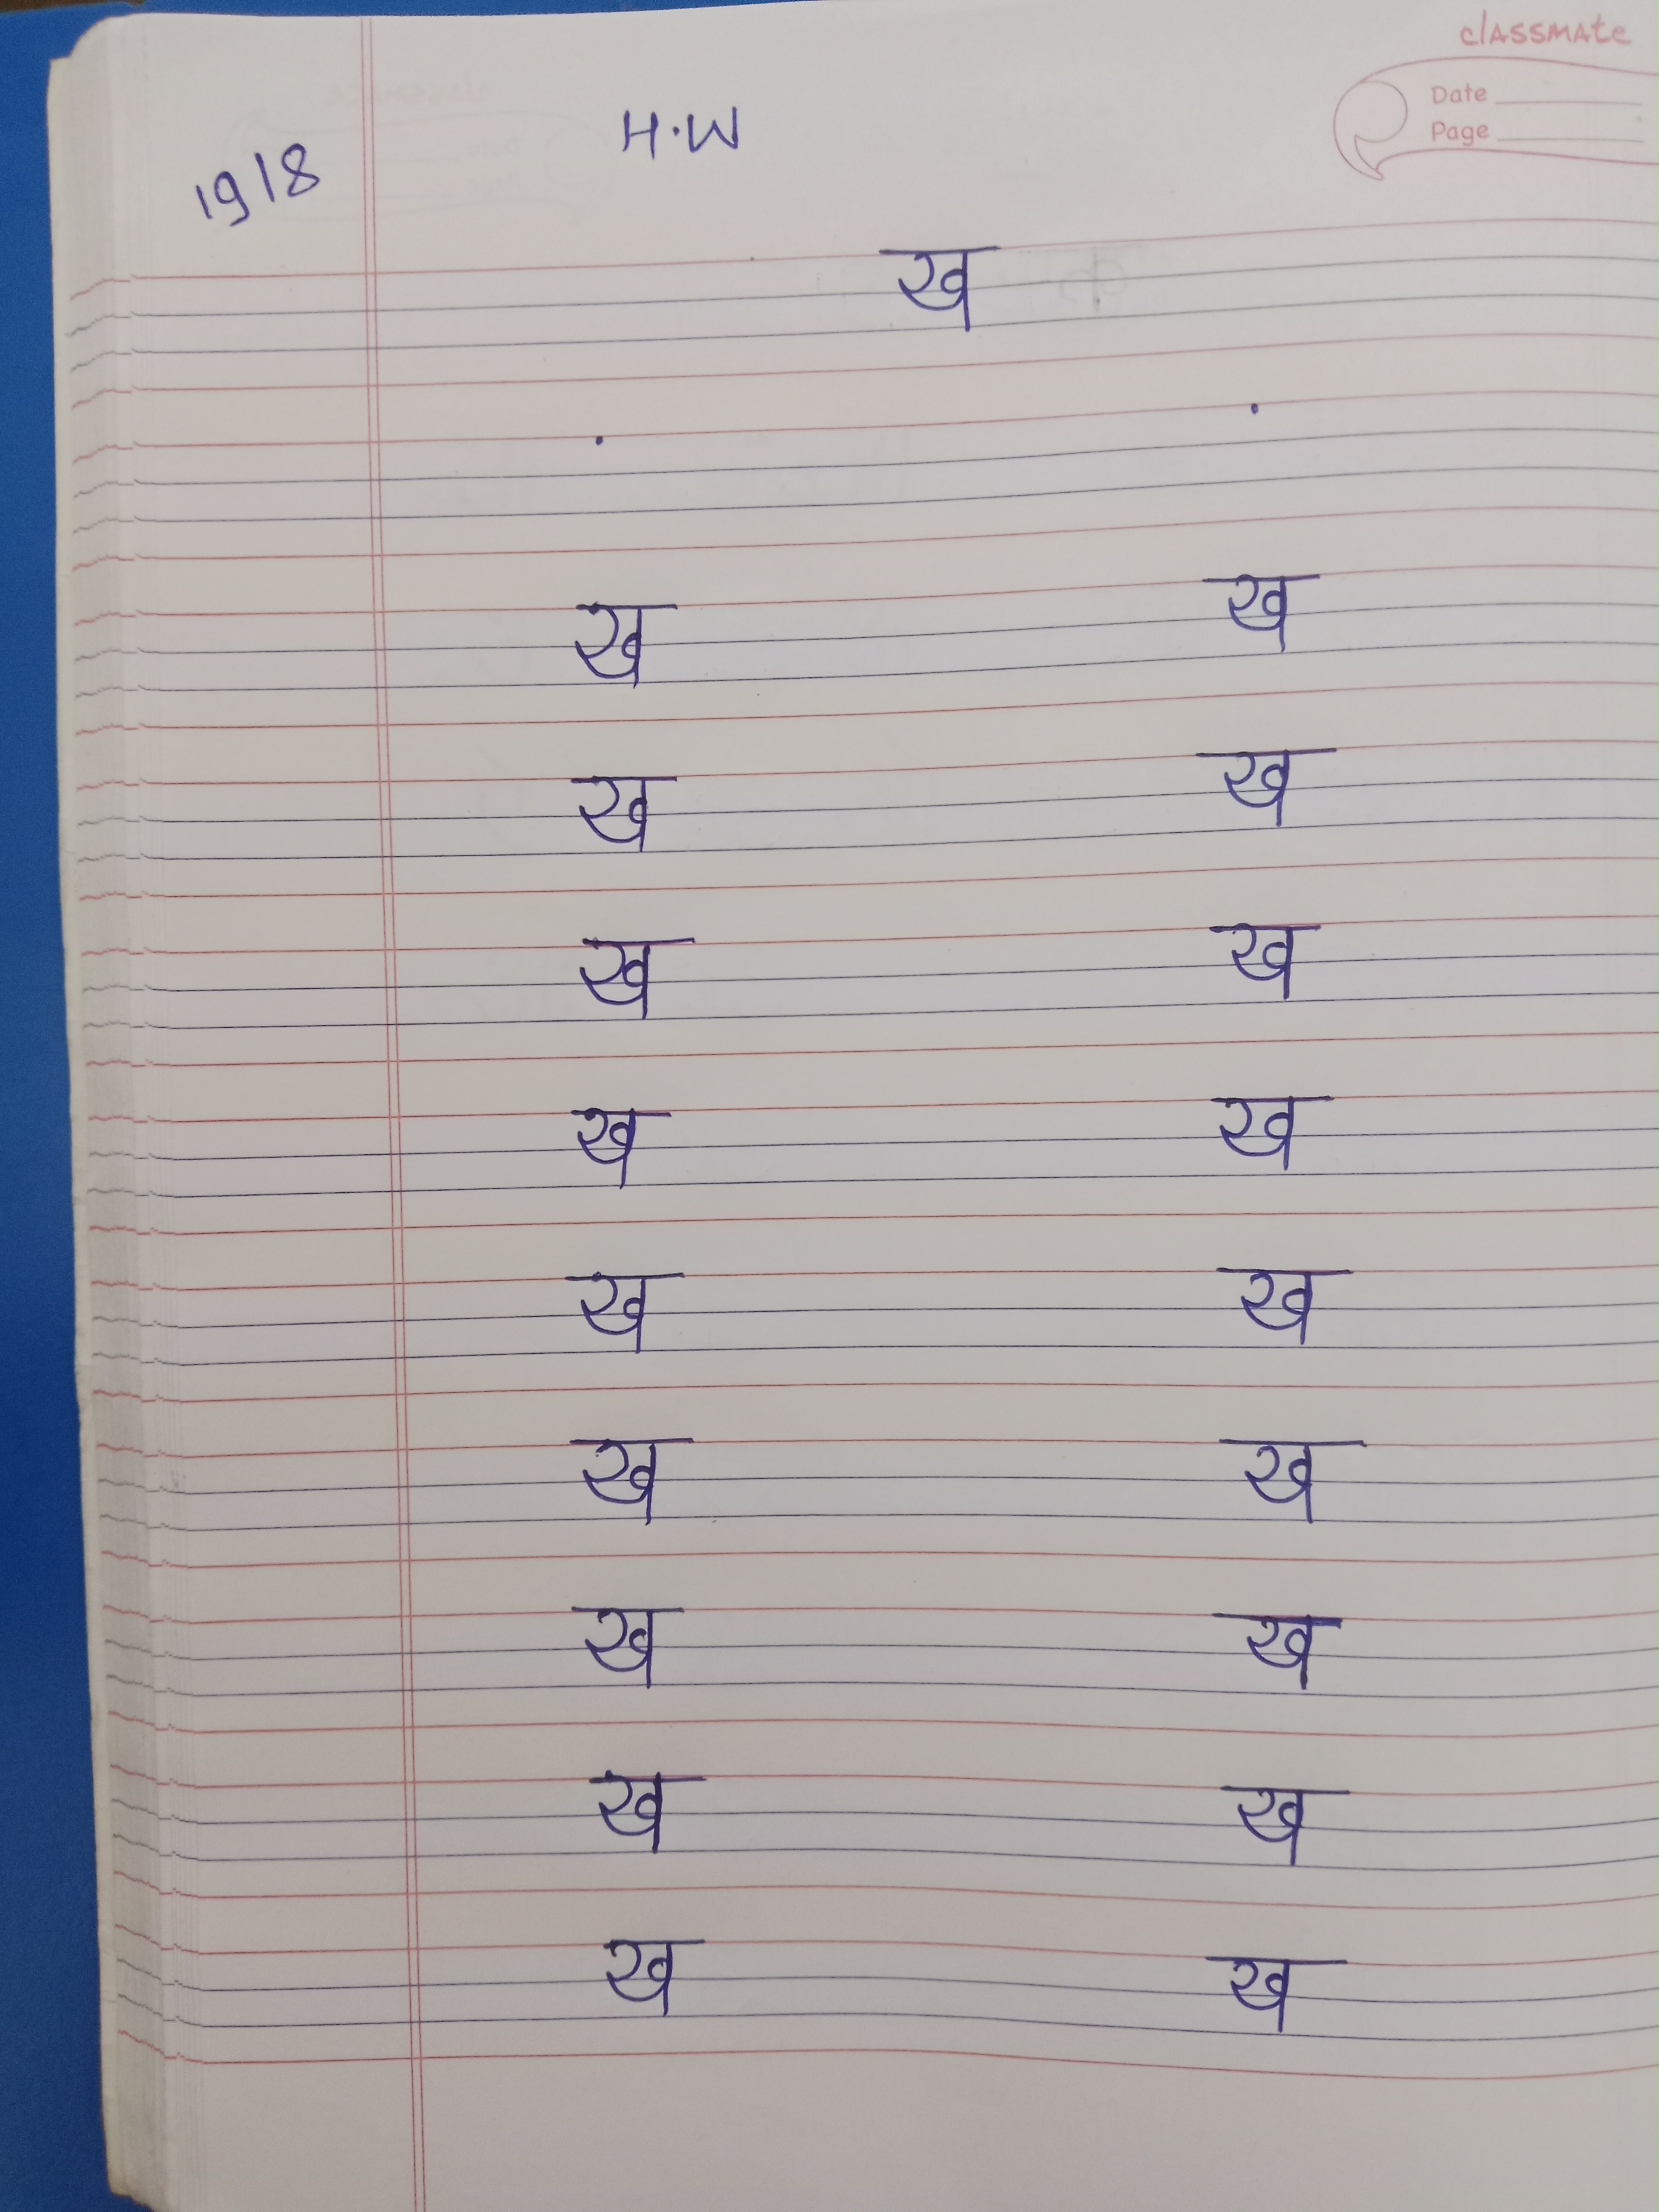 classmate
Date
Page
H.W
19/8
ख
ख ख
ख ख
ख ख
ख ख
ख ख
ख ख
ख ख
ख ख
ख ख